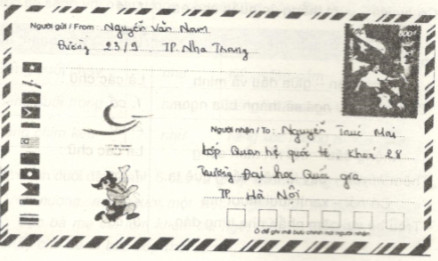 Người gửi / From Nguyễn Văn Nam
Đường 23/9. TP. Nha Trang
800đ
Người nhận / To Nguyễn Trúc Mai
Lớp Quan hệ quốc tế, Khoá 28
Trường Đại học Quốc gia
TP. Hà Nội
Ô để ghi mã bưu chính nơi người nhận